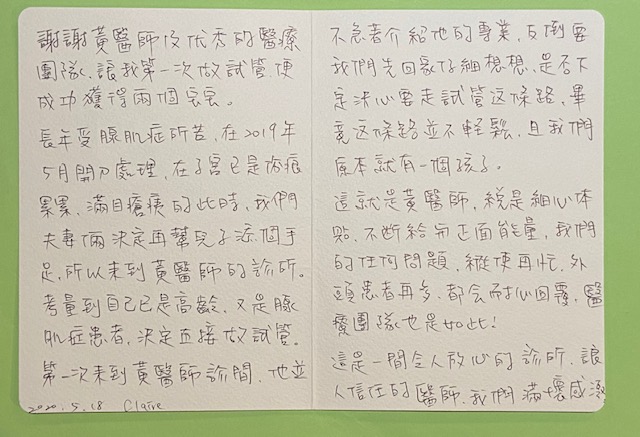 謝謝黃醫師及優秀的醫療
團隊、讓我第一次做試管便
成功獲得兩個寶寶。
長年受腺肌症所苦,在2019年
5月開刀處理,在子宮已是傷痕
累累、滿目瘡痍的此時,我們
夫妻倆決定再幫兒子添個手
足,所以來到黃醫師的診所。
考量到自己已是高齡,又是腺
肌症患者,決定直接做試管。
第一次來到黃醫師診間,他並
2020.5.18 Claire
不急著介紹他的專業,反倒要
我們先回家仔細想想,是否下
定決心要走試管这條路,畢
竟这條路並不輕鬆,且我們
原本就有一個孩子。
這就是黃醫師,總是細心体
貼、不斷給予正面能量,我們
的任何問題,縱使再忙、外
頭患者再多,都会耐心回覆,醫
療團隊也是如此!
這是一間令人放心的診所、讓
人信任的醫師、我們滿懷感激